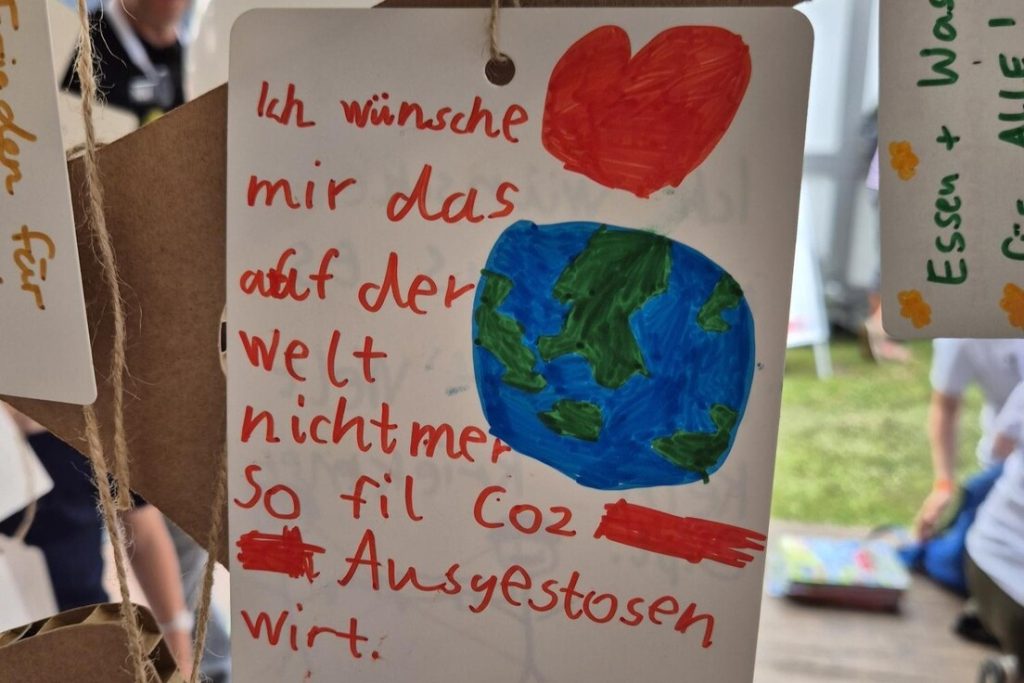 Ich wünsche
mir das
auf der
welt
nicht mer
So fil Co2
Ausgestosen
wirt.
für
Essen + Was
für ALLE